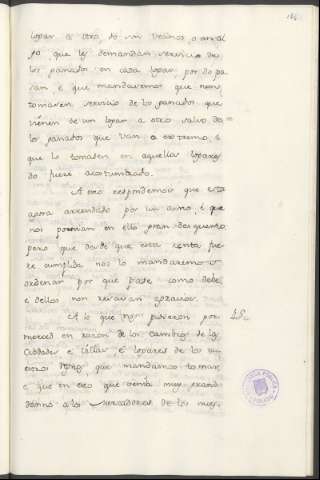 lopar a otro, do son vecinos, o en al
po, que les demandan servicio de
los panados en cada lopar por do pa
san, e que mandaremos que non
tomasen servicio de los panados que
vienen de un lopar a otro salvo de
los panados que van a extremo, e
que lo tomasen en aquellos lopares
do fuere acostumbrado.
A esto respondemos que esta
agora arrendado por un anno, e que
nos pornian en ello gran descuento
pero que desde que esta renta fue
re cumplida nos lo mandaremos
ordenar por que pase como debe
e dellos non reciban agravio.
A lo que nos pidieron por 48.
merced en razon de los cambios de las
Cibdades e Villas, e lopares de los nu
estros que mandamos tomar,
e que en esto que venia muy grand
danno a los Mercadores de los nues